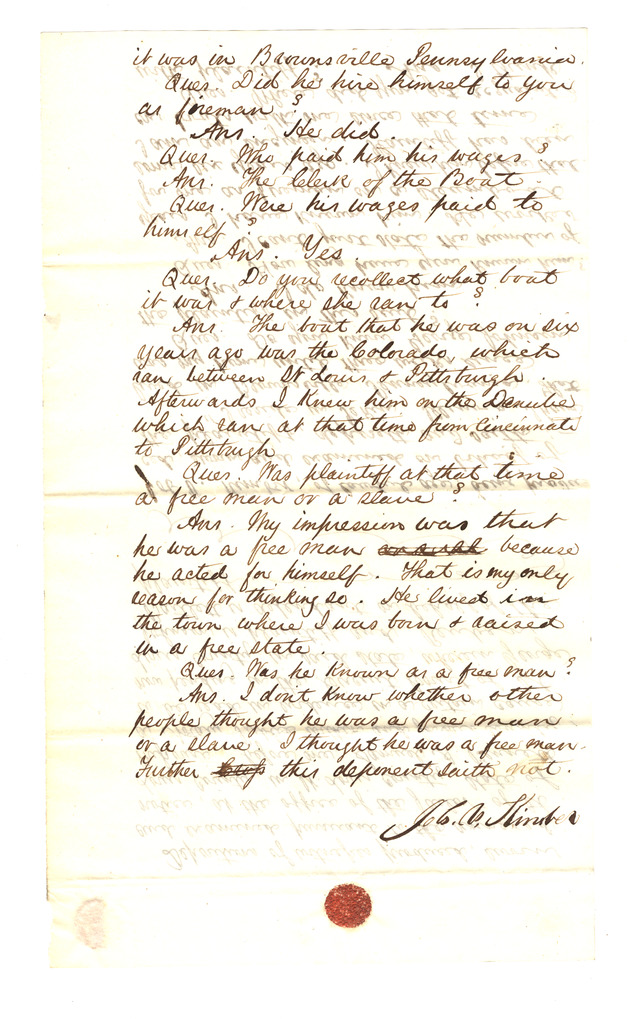 it was in Brownsville Pennsylvania.
Ques. Did he hire himself to you
as fireman?
Ans. He did.
Ques. Who paid him his wages?
Ans. The Clerk of the Boat.
Ques. Were his wages paid to
himself?
Ans. Yes.
Ques. Do you recollect what boat
it was & where she ran to?
Ans. The boat that he was on six
years ago was the Colorado, which
ran between St Louis & Pittsburgh.
Afterwards I knew him on the Danube
which ran at that time from Cincinnati
to Pittsburgh
Ques. Was plaintiff at that time
a free man or a slave?
Ans. My impression was that
he was a free man because
he acted for himself. That is my only
reason for thinking so. He lived in
the town where I was born & raised
in a free state.
Ques. Was he known as a free man?
Ans. I don't know whether other
people thought he was a free man
or a slave. I thought he was a free man.
Further this deponent saith not.